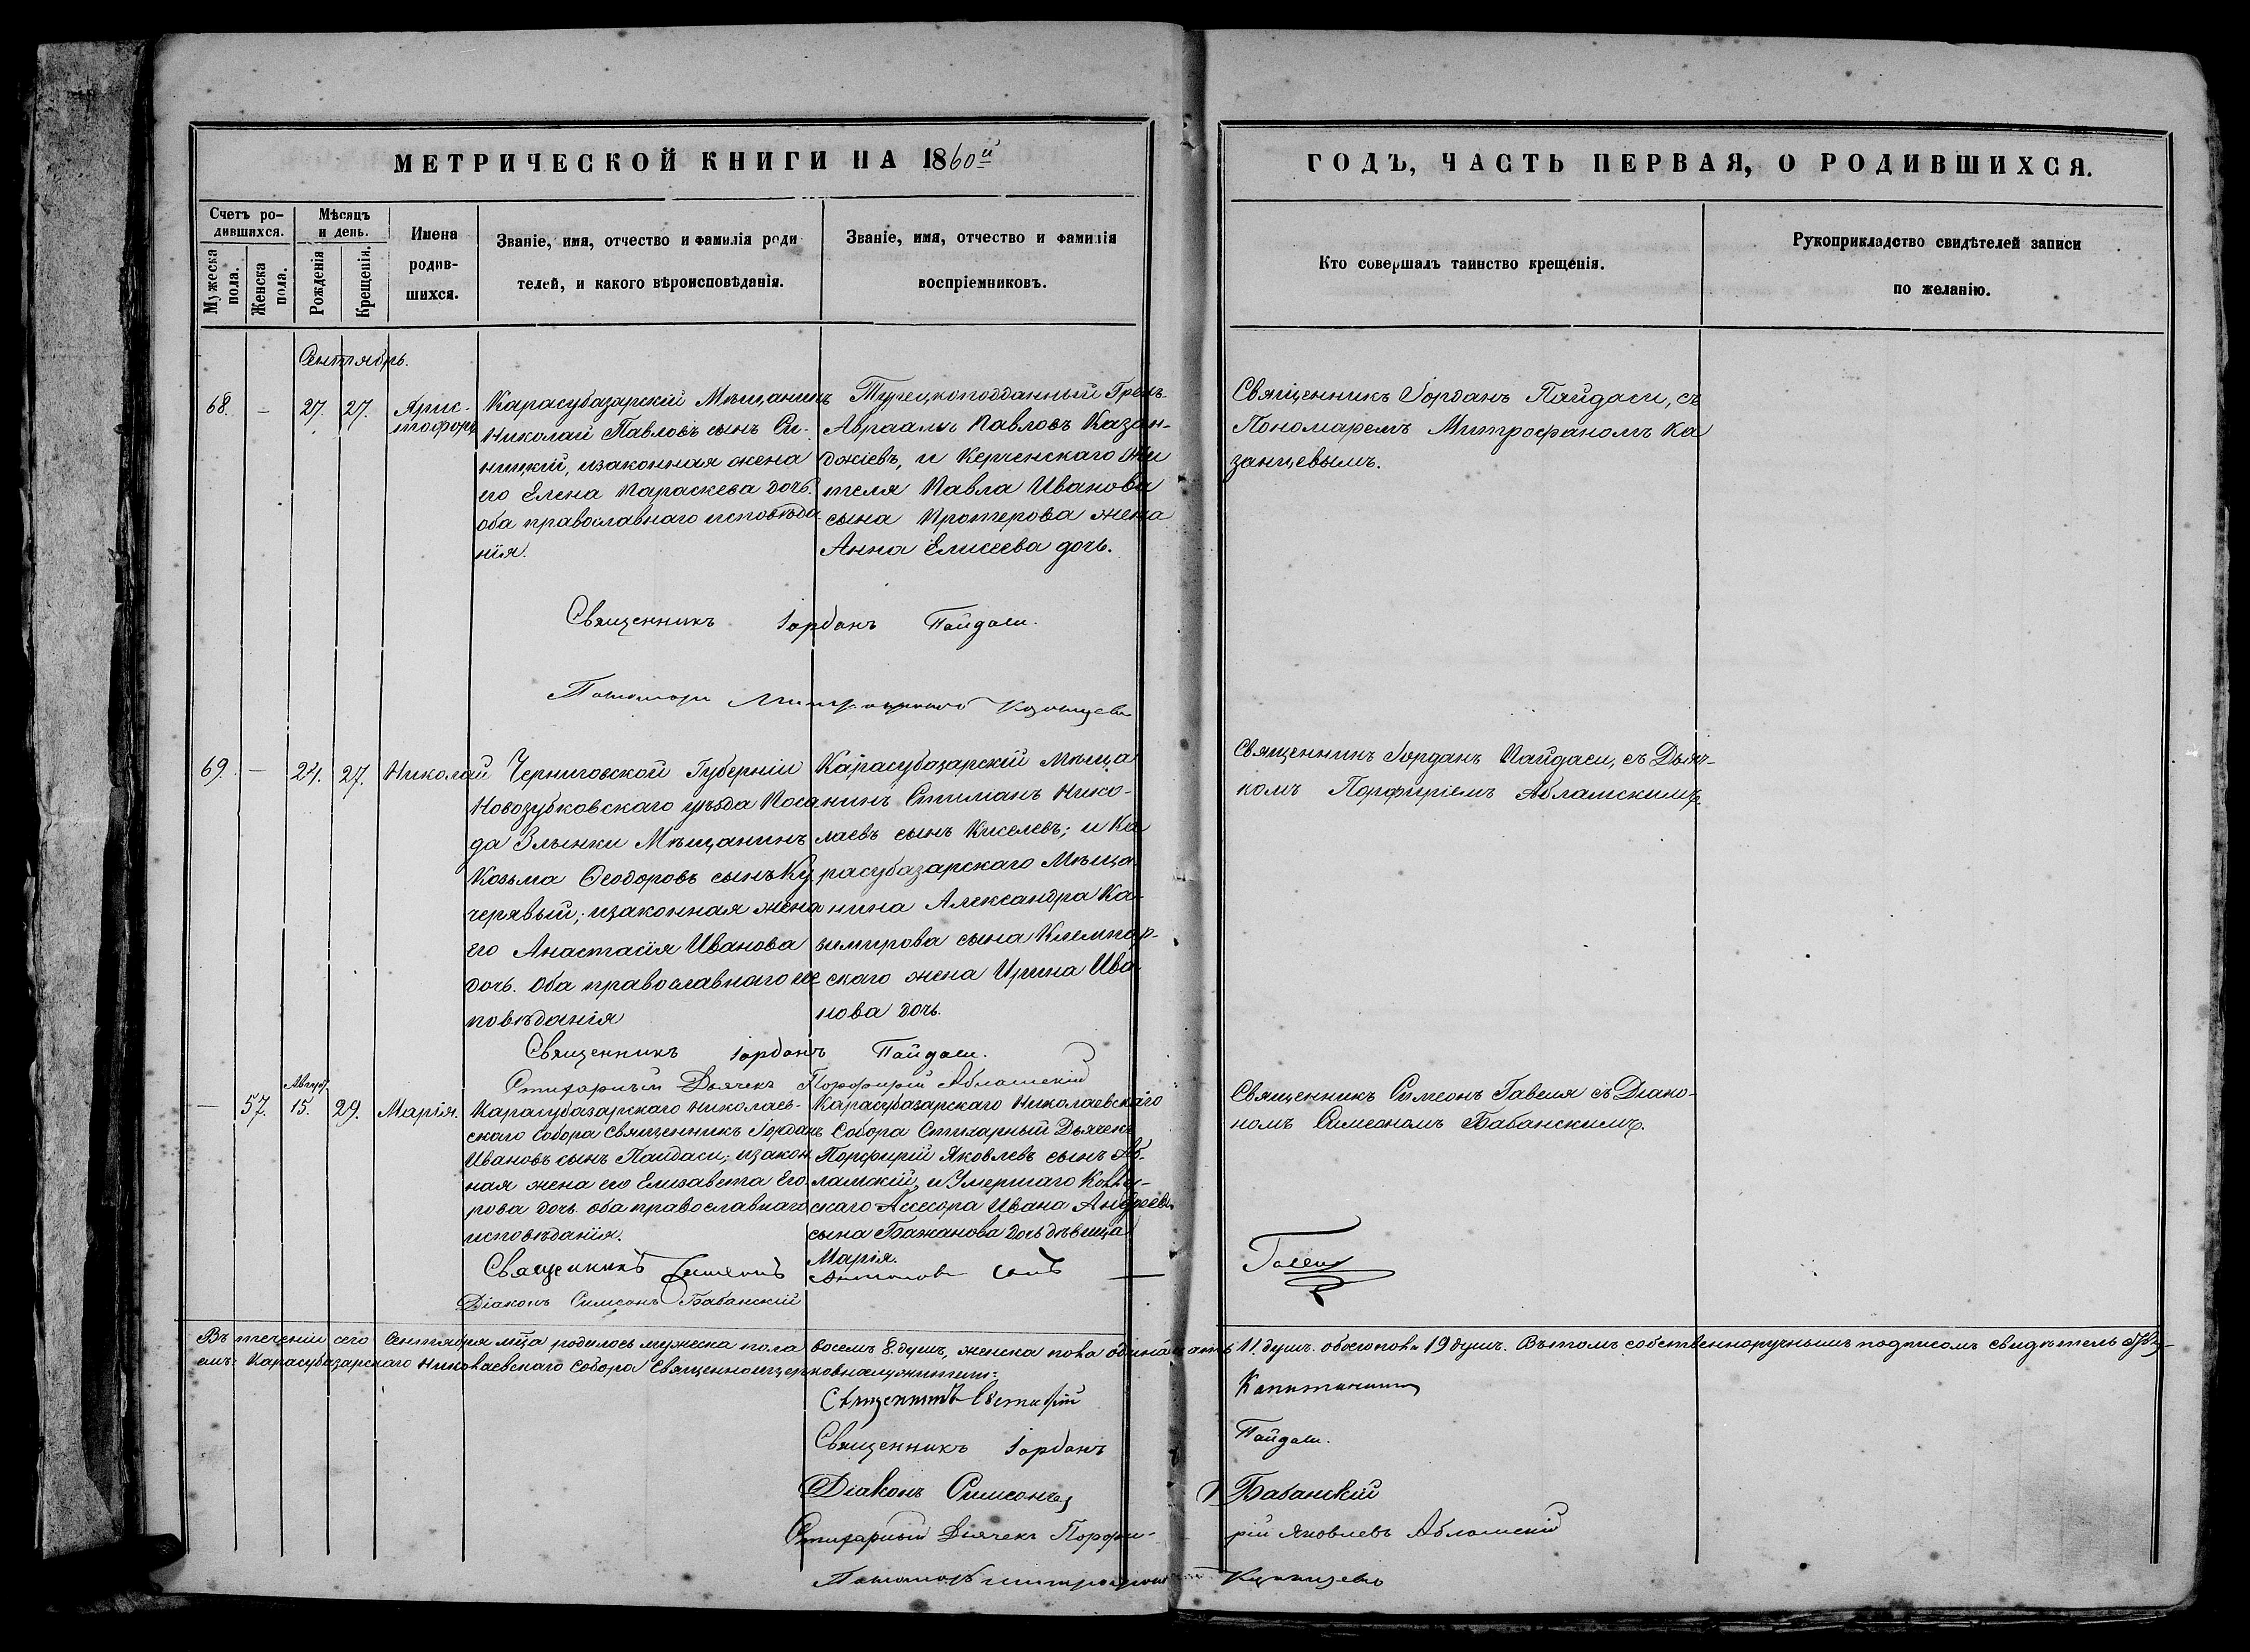 МЕТРИЧЕСКОЙ КНИГИ НА 1860й
ГОДЪ, ЧАСТЬ ПЕРВАЯ, О РОДИВШИХСЯ.
Счетъ ро-
дившихся.
Мужеска пола.
Женска пола.
Мѣсяцъ
и день.
Рожденія
Крещенія.
Имена
родив-
шихся.
Званіе, имя, отчество и фамилія роди
телей, и какого вѣроисповѣданія.
Званіе, имя, отчество и фамилія
воспріемниковъ.
Кто совершалъ таинство крещенія.
Рукоприкладство свидѣтелей записи
по желанію.
Сентябрь.
68. – 27. 27.
Арис-
тофоръ
Карасубазарскій Мѣщанинъ
Николай Павловъ сынъ Си-
ницкій, изаконная жена
его Елена Параскева дочь.
оба православнаго исповѣда
нія.
Турецкоподданный Грекъ
Авраамъ Павловъ Казан-
джіевъ, и Керченскаго Жи
теля Павла Иванова
сына Протерова жена
Анна Елисеева дочь.
Священникъ Іорданъ Пайдаси, съ
Пономаремъ Митрофаномъ Ка
занцевымъ.
Священникъ Іорданъ Пайдаси.
Пономарь Митрофанъ Казанцевъ
69. – 24. 27. Николай
Черниговской Губерніи
Новозубковскаго уѣзда Поса
да Злынки Мѣщанинъ
Козьма Ѳеодоровъ сынъ Ку
черявый; изаконная жена
его Анастасія Иванова
дочь. Оба православнаго ис
повѣданія
Карасубазарскій Мѣща
нинъ Стиліанъ Нико-
лаевъ сынъ Киселевъ; и Ка
расубазарскаго Мѣща-
нина Александра Ка-
зимирова сына Клемпар-
скаго жена Ирина Ива
нова дочь.
Священникъ Іорданъ Пайдаси, съ Дьяч-
комъ Порфиріемъ Абламскимъ.
Священникъ Іорданъ Пайдаси.
Стихарный Дьячекъ Порфирій Абламскій
Август.
– 57. 15. 29. Марія.
Карасубазарскаго Николаев-
скаго Собора Священникъ Іорданъ
Ивановъ сынъ Пайдаси; изакон
ная жена его Елизавета Его-
рова дочь. оба православнаго
исповѣданія.
Карасубазарскаго Николаевскаго
Собора Стихарный Дьячекъ
Порфирій Яковлевъ сынъ Аб-
ламскій, и Умершаго Коллеж-
скаго Ассесора Ивана Андреева
сына Бажанова дочь дѣвица
Марія.
Священникъ Симеонъ Гавеля съ Діако-
номъ Симеономъ Бабанскимъ.
Священникъ Симеонъ Антонов сынъ
Діаконъ Симеонъ Бабанскій
Въ теченіи сего Сентября мѣца родилось мужеска пола восемъ 8. душъ, женска пола одинадцать 11. душъ. обоего пола 19 душъ. Въ томъ собственноручнымъ подписомъ свидѣтельству-
емъ: Карасубазарскаго Николаевскаго Собора Священноицерковнослужители:
Священникъ Евстафій
Священникъ Іорданъ Пайдаси.
Діаконъ Симеонъ Бабанскій
Стихарный Дьячекъ Порфи-
рій Яковлевъ Абламскій
Пономарь Митрофанъ Казанцевъ